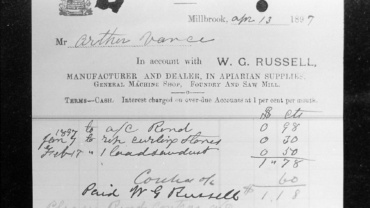 Millbrook, Apr 13 1897
Mr Arthur Vance
In account with W. G. RUSSELL,
MANUFACTURER AND DEALER, IN APIARIAN SUPPLIES,
GENERAL MACHINE SHOP, FOUNDRY AND SAW MILL.
TERMS—CASH. Interest charged on over-due Accounts at 1 per cent per month.
$ cts
1897 to a/c Rend 0 98
Jany 7 to curling stones 0 30
Feb 17 " 1 load sawdust 0 50
1 78
Contra 60
Paid W G Russell $ 1.18